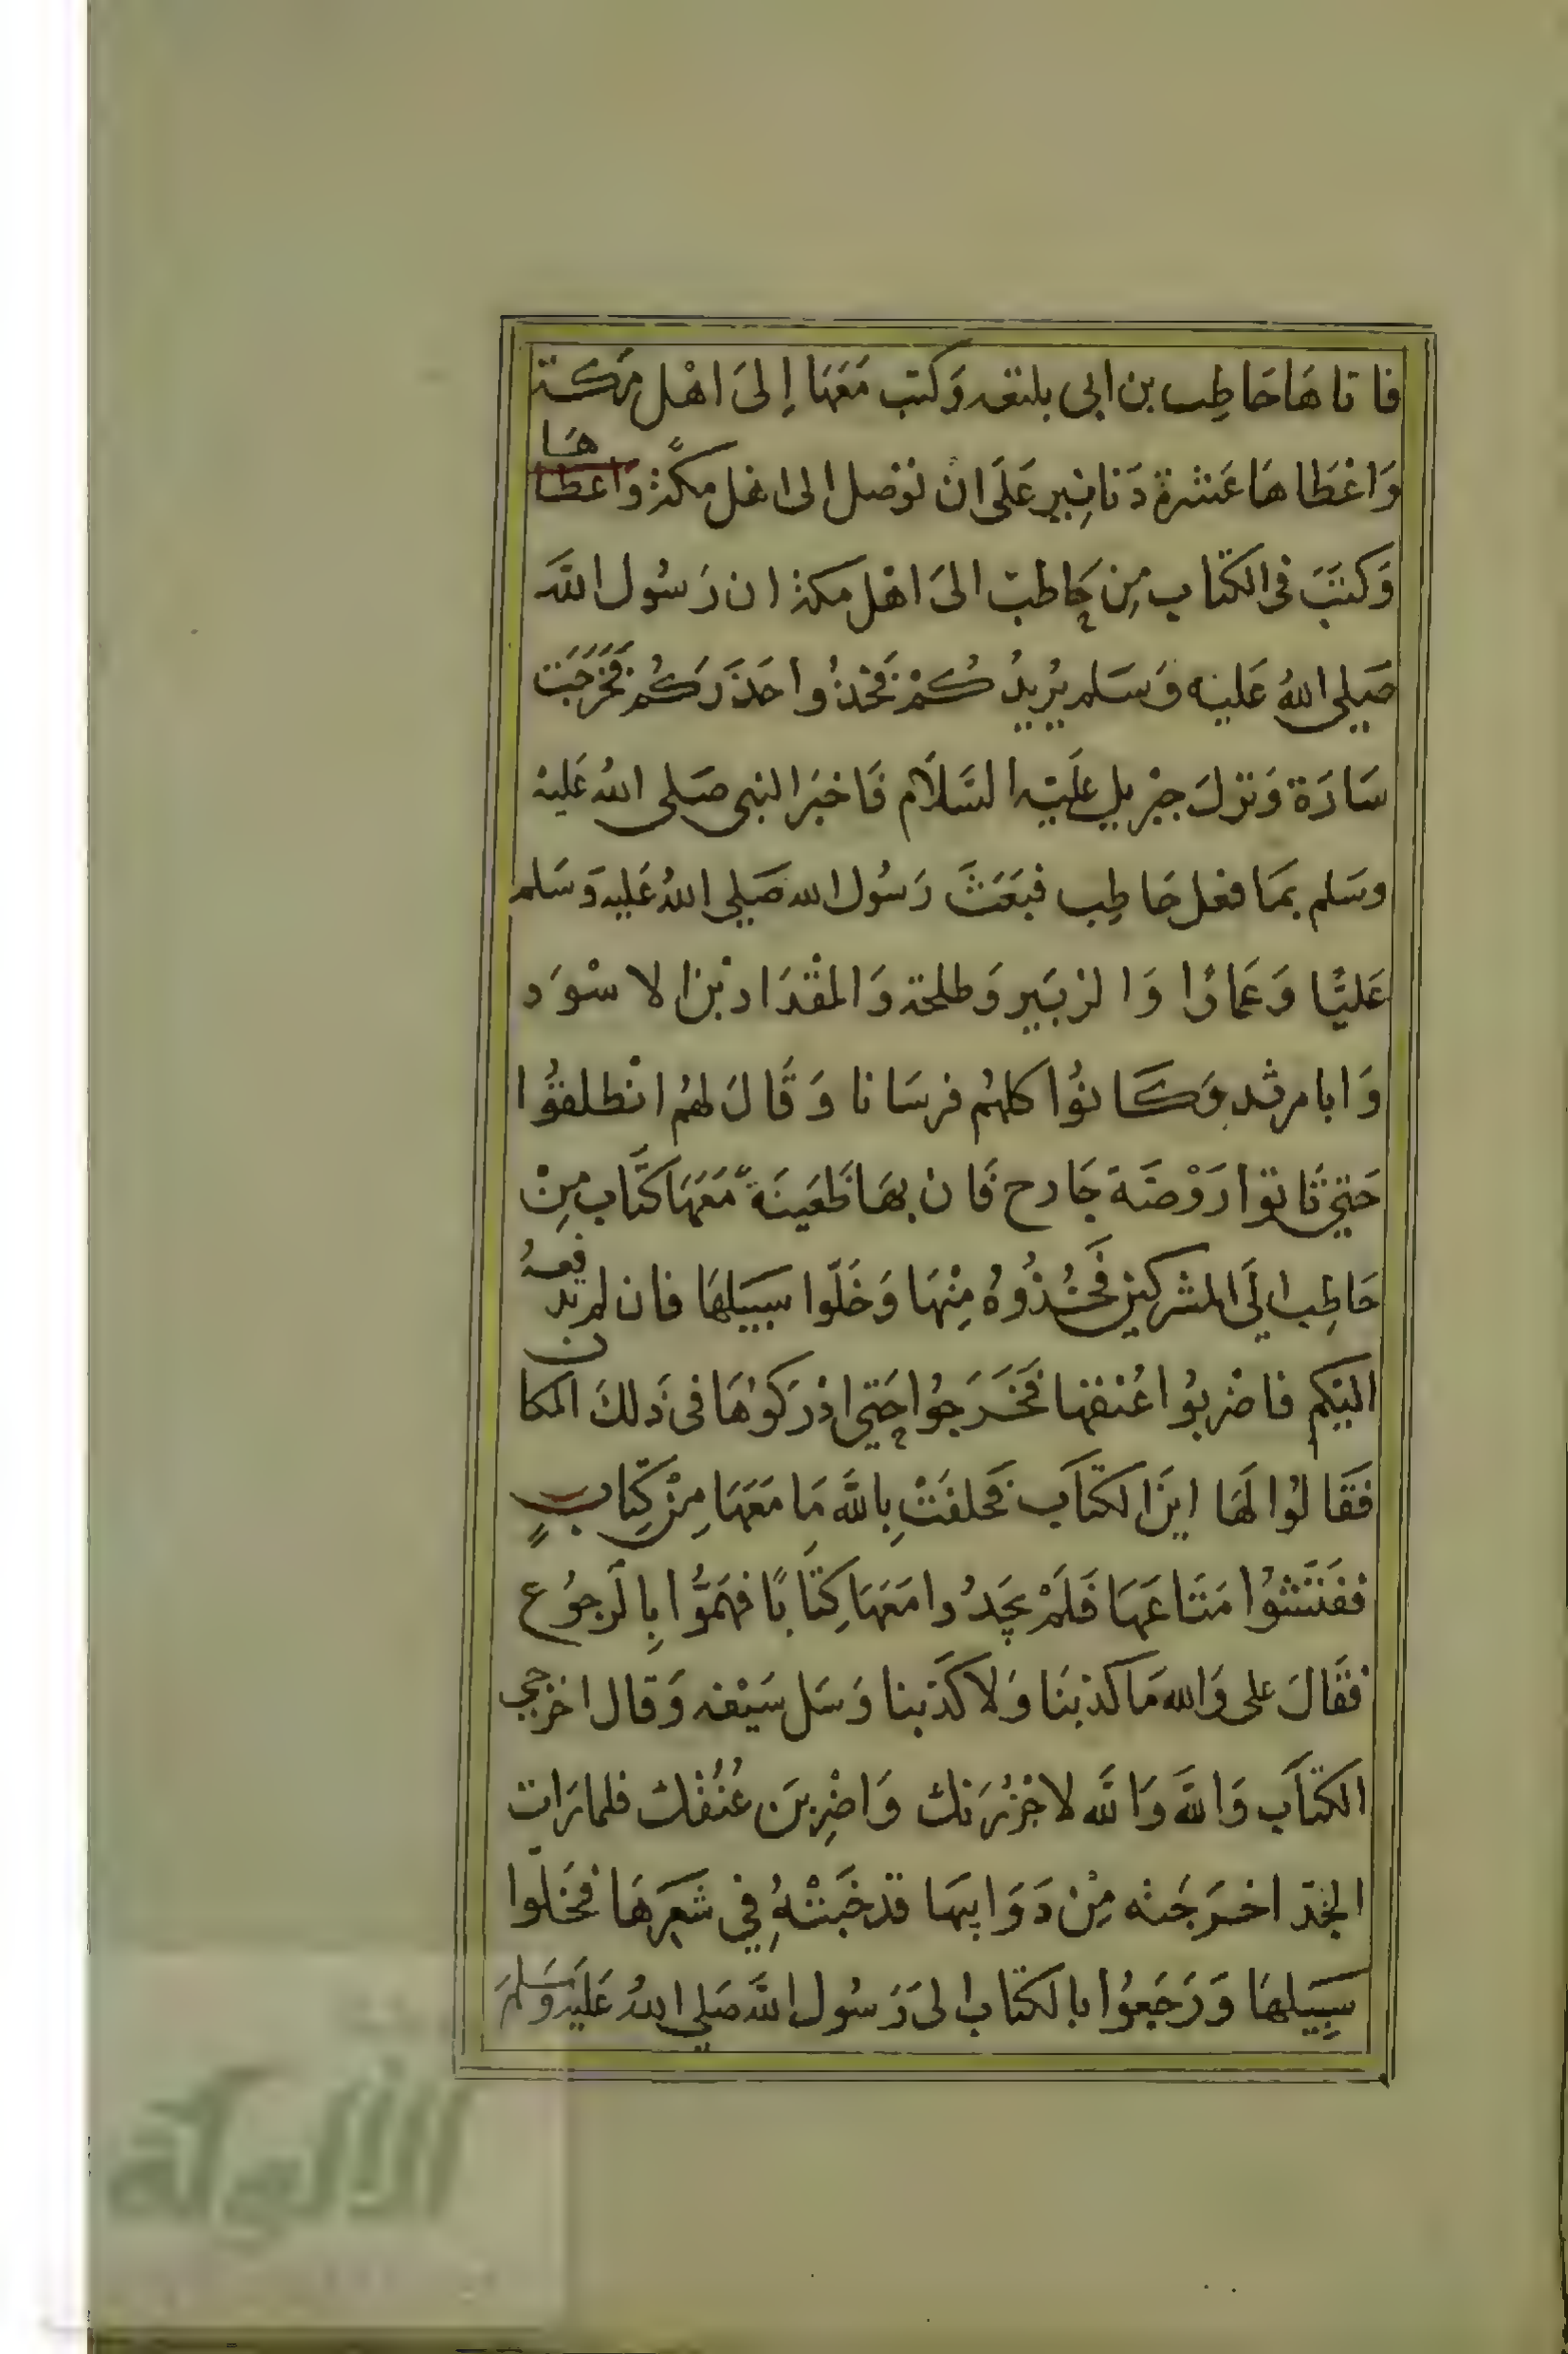 فاتاهَا حَاطِب بن ابى بلتعه وَكتب مَعَهَا إلىَ اهْل مَكة
وَاعْطَاهَا عَشرة دَنانِير عَلَى انْ توَصل الى اهل مكةً واعطاها
وَكتَبَ فى الكتاب مِن حاطب الىَ اهْل مكة ان رَسُول اللَّه
صَلى اللهُ عَليه وَسَلم يُريدُ كُمْ فَخذُوا حَذَرَكُم فَخَرَجَت
سَارَة وَنزلَ جبْريل عَليْه السَّلَام فَاخبَر النبى صَلى اللهُ عَليْه
وسَلم بمَا فعل حَاطِب فبَعَثَ رَسُول الله صَلى اللهُ عَليه وَسَلم
عَليًّا وَعَمارًا وَالزبَير وَطلحة وَالمقْدَاد بْن الاسْوَد
وَابا مرثد وَكَانوُا كلهُم فرسَانا وَقَالَ لهمُ انْطلقوُا
حَتى تَاتوا رَوْضَة خَارح فَان بهَا ظَعَينَةً مَعَهَا كتَاب مِنْ
حَاطِب الَى المشركين فَخُذُوهُ مِنْهَا وَخَلّوا سبيَلهَا فان لم يدفعهُ
اليَكم فاضْربوُا عُنقهَا فَخَرَجوُا حَتى ادْرَكوُهَا فى ذَلكَ المكان
فَقَالوُا لَهَا اين الكتاَب فَحلفَتْ بِاللَّه مَا مَعَهَا مِنْ كِتابٍ
ففَتَشوُا مَتَاعَهَا فَلَمْ يجَدُوا مَعَهَا كِتَابًا فهَموُّا بِالرجوُع
فقَالَ على وَالله مَا كذبنَا وَلَا كَذبنا وَسَل سَيْفه وَقال اخرجى
الكتاَب وَاللَّه وَاللَّه لاجْزُرَنك وَاضْرِبَن عُنُقْك فلما رَات
الجدّ اخرَجَته مِنْ دَوَايبهَا قد خَبَتْهُ فِي شعَرهَا فخَلوّا
سبِيَلهَا وَرَجَعوُا بالكتاب الىَ رَسُول اللَّه صَلى اللهُ عَليَه وَسَلمَ
الألوكة